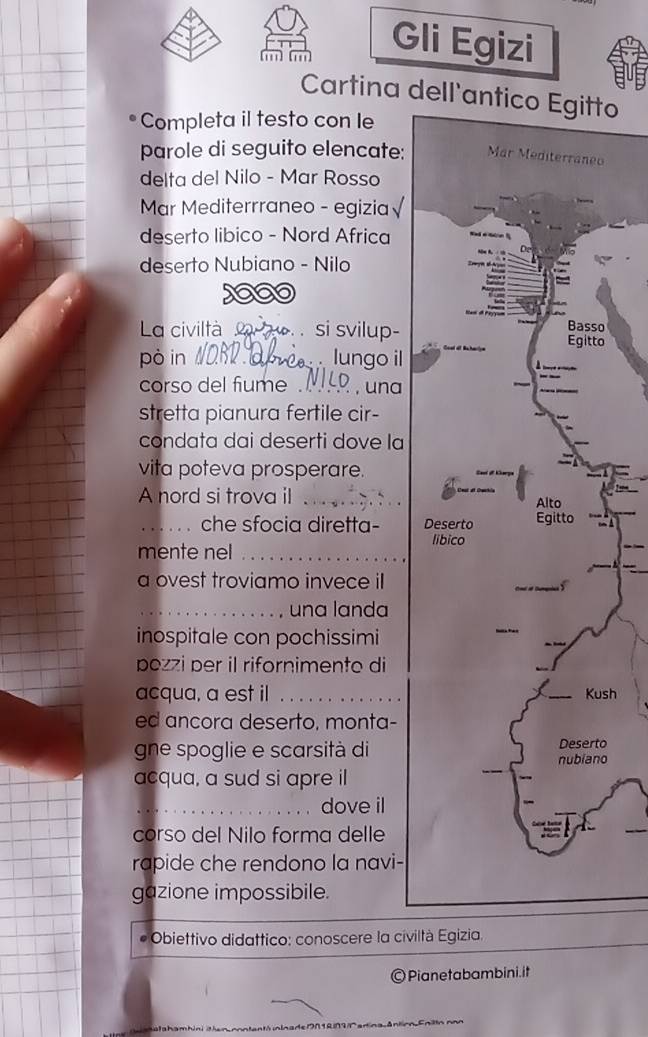 Gli Egizi
Cartina dell'antico Egitto
Completa il testo con le
parole di seguito elencate:
delta del Nilo - Mar Rosso
Mar Mediterrraneo - egizia √
deserto libico - Nord Africa
deserto Nubiano - Nilo
La civiltà egizia . . si svilup-
pò in NORD Africa . . lungo il
corso del fiume . NILO , una
stretta pianura fertile cir-
condata dai deserti dove la
vita poteva prosperare.
A nord si trova il . . . . . . . . . .
. . . . . . che sfocia diretta-
mente nel . . . . . . . . . . . . . . . . .
a ovest troviamo invece il
. . . . . . . . . . . . . . , una landa
inospitale con pochissimi
pozzi per il rifornimento di
acqua, a est il . . . . . . . . . . . . .
ed ancora deserto, monta-
gne spoglie e scarsità di
acqua, a sud si apre il
. . . . . . . . . . . . . . . . . . dove il
corso del Nilo forma delle
rapide che rendono la navi-
gazione impossibile.
Mar Mediterraneo
Basso
Egitto
Alto
Egitto
Deserto
libico
Kush
Deserto
nubiano
Obiettivo didattico: conoscere la civiltà Egizia.
© Pianetabambini.it